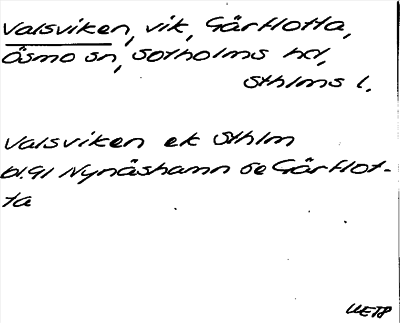 Valsviken, vik, Gårflotta,
Ösmo sn, Sotholms hd,
Sthlms l.
Valsviken ek Sthlm
bl. 91 Nynäshamn 6e Gårflot-
ta